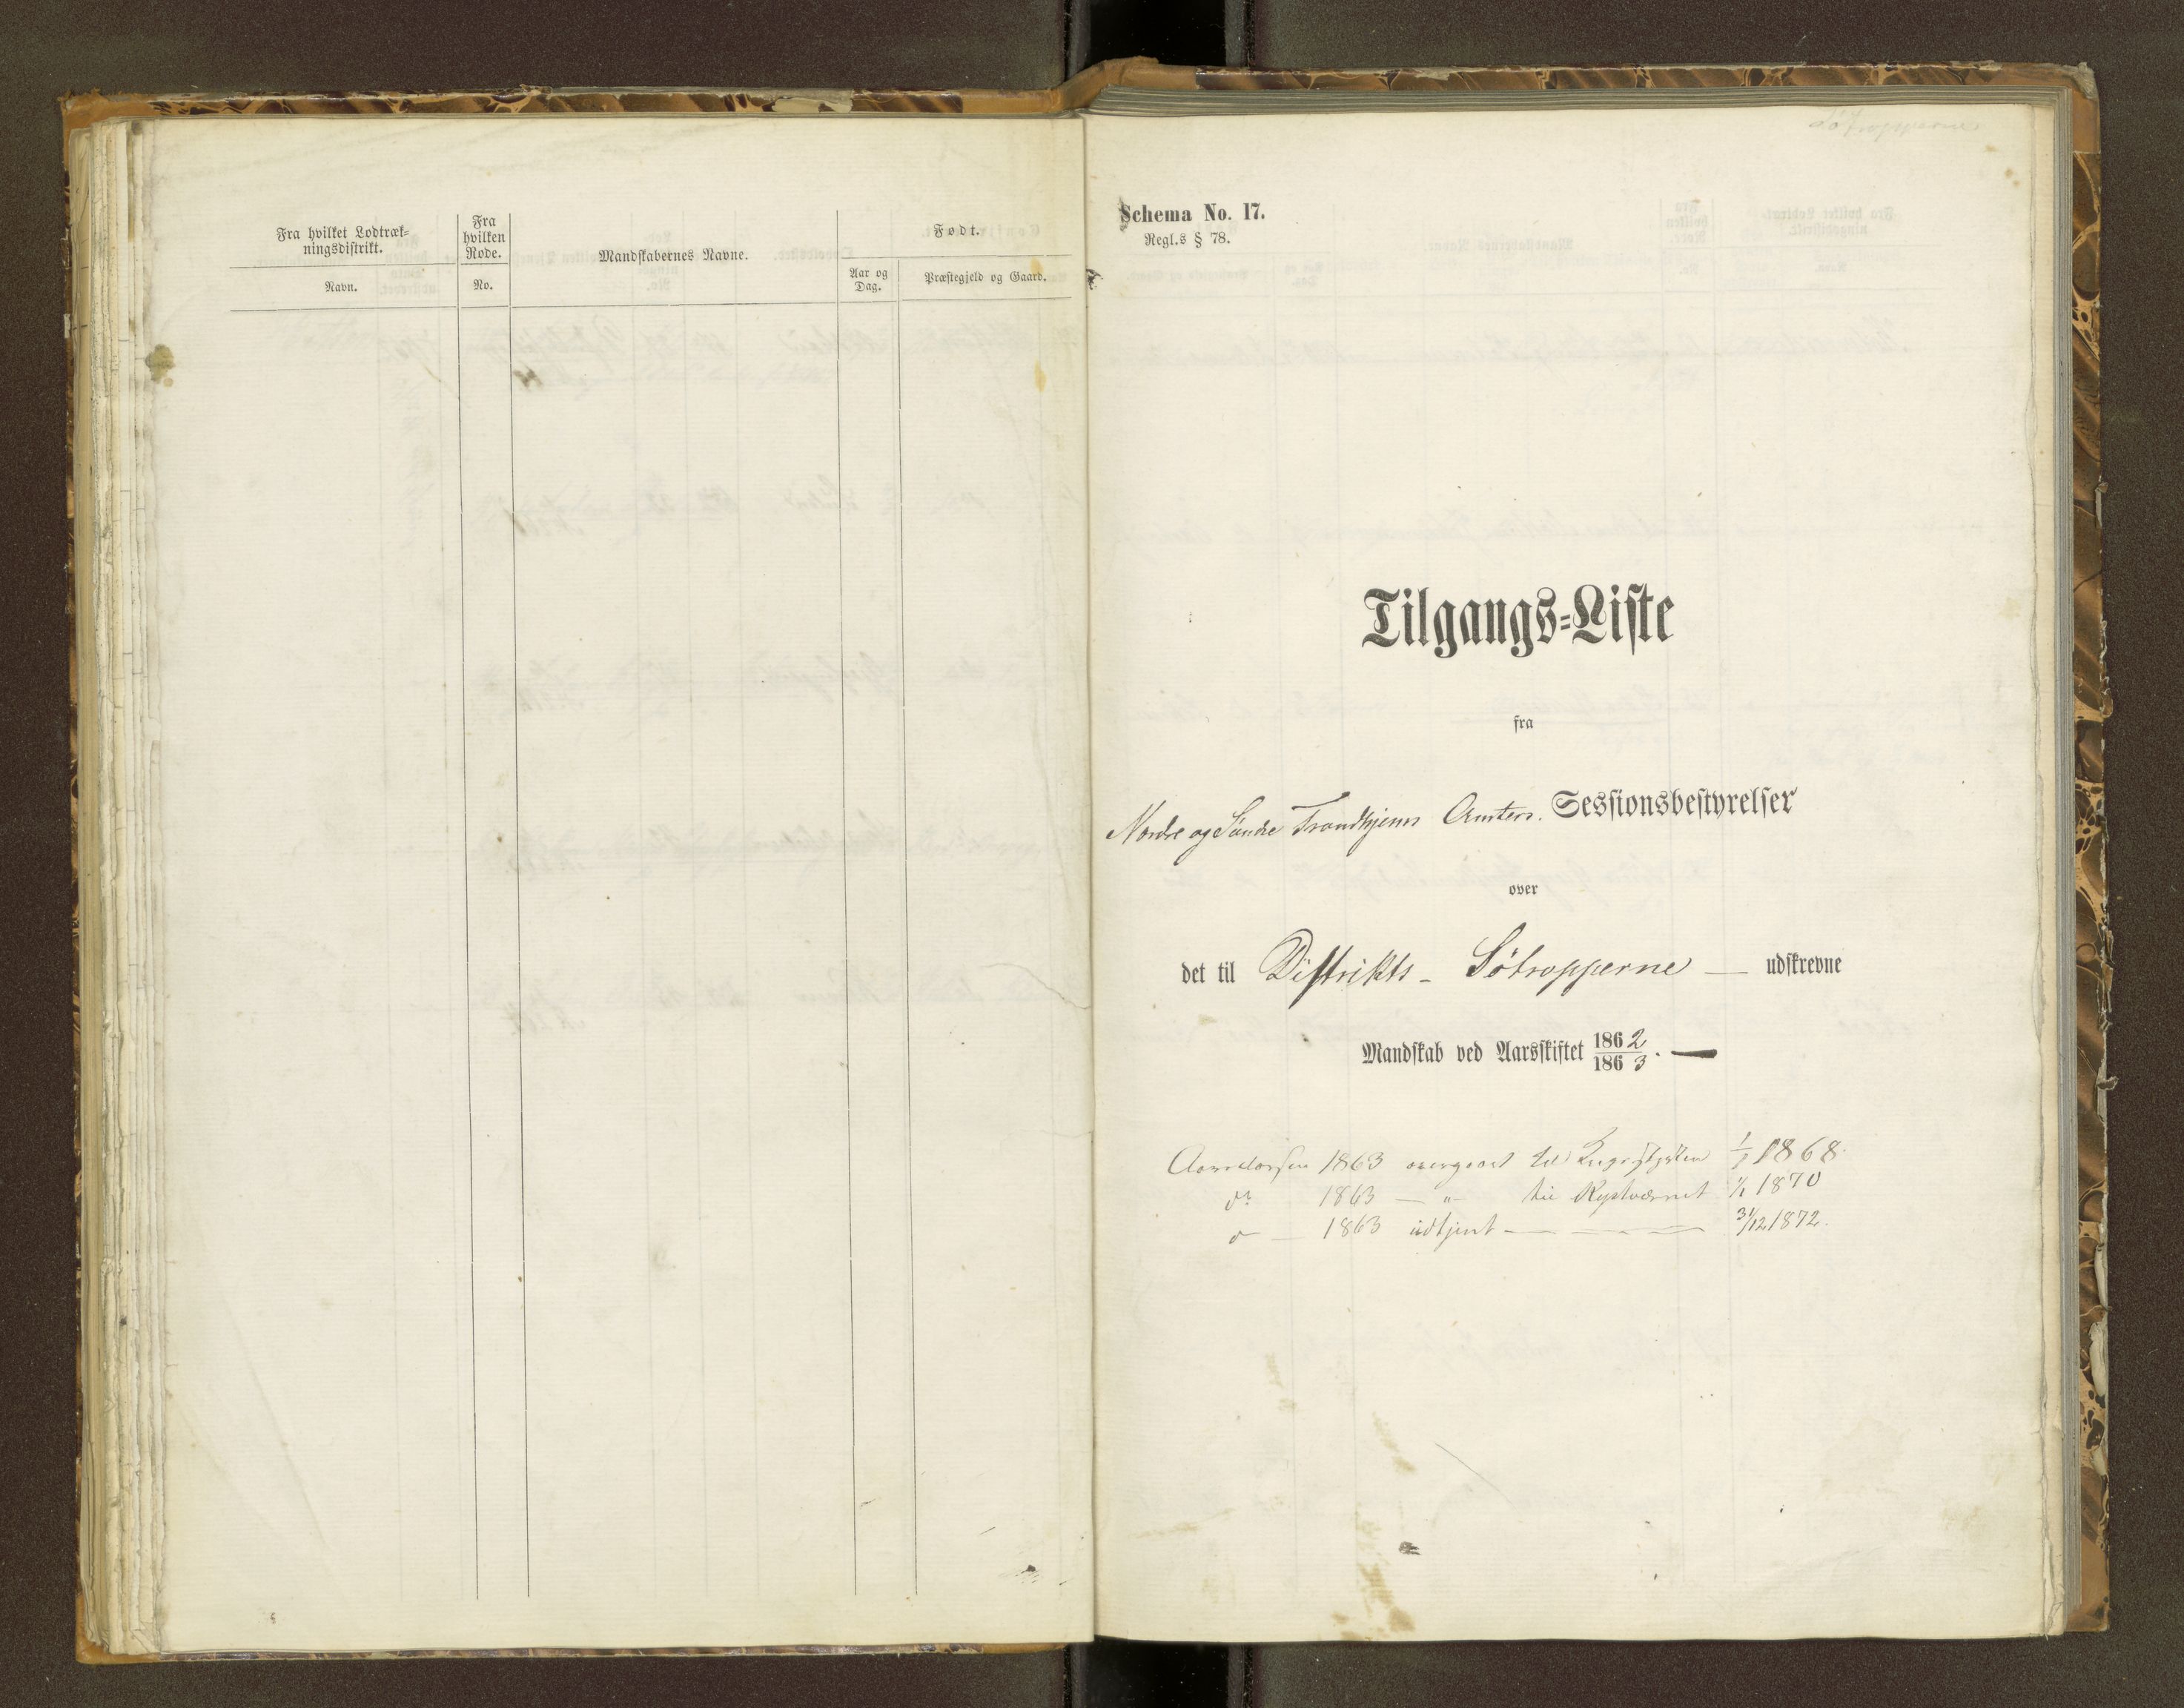 Fra hvilket Lodtræk-
ningsdistrikt.
Navn.
Fra
hvilken
Rode.
No.
Mandskabernes Navne.
Født.
Aar og
Dag.
Præstegjeld og Gaard.
Søtropperne
Schema No. 17.
Regl.s § 78.
Tilgangs-Liste
fra
Nordre og Søndre Trondhjems Amters. Sessionsbestyrelser
over
det til Distrikts - Søtropperne — udskrevne
Mandskab ved Aarsskiftet 1862/1863. —
1863 overgaaet til 1/1 1868
do 1863 — " — til Kystværnet 1/1 1870
do — 1863 udtjent — — — — 31/12 1872.